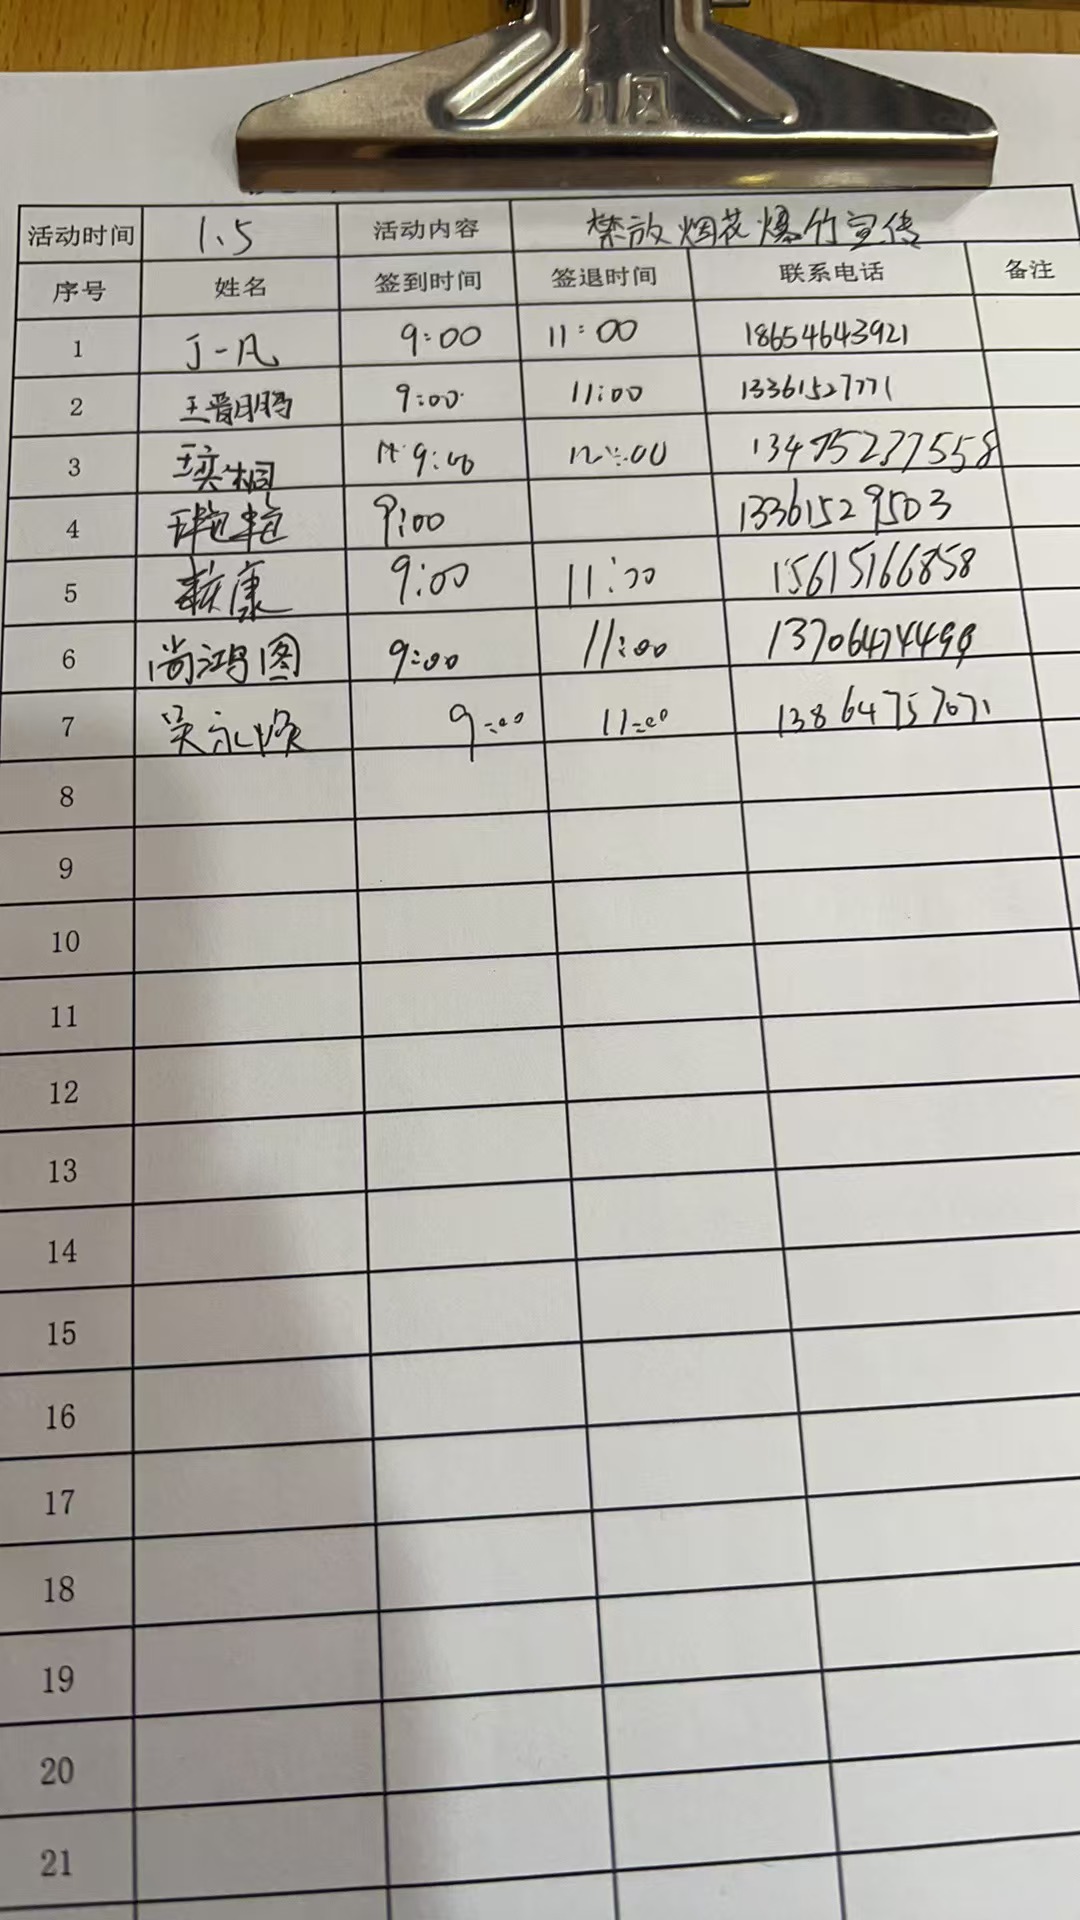 活动时间 1.5 活动内容 禁放烟花爆竹宣传
序号 姓名 签到时间 签退时间 联系电话 备注
1 丁一凡 9:00 11:00 18654643921
2 王晋鹏 9:00 11:00 13361527771
3 9:00 13475237558
4 9:00 13361529503
5 康 9:00 11:00 15615166858
6 尚鸿图 9:00 11:00
7 吴永焕 9:00 11:00 13864757071
8
9
10
11
12
13
14
15
16
17
18
19
20
21